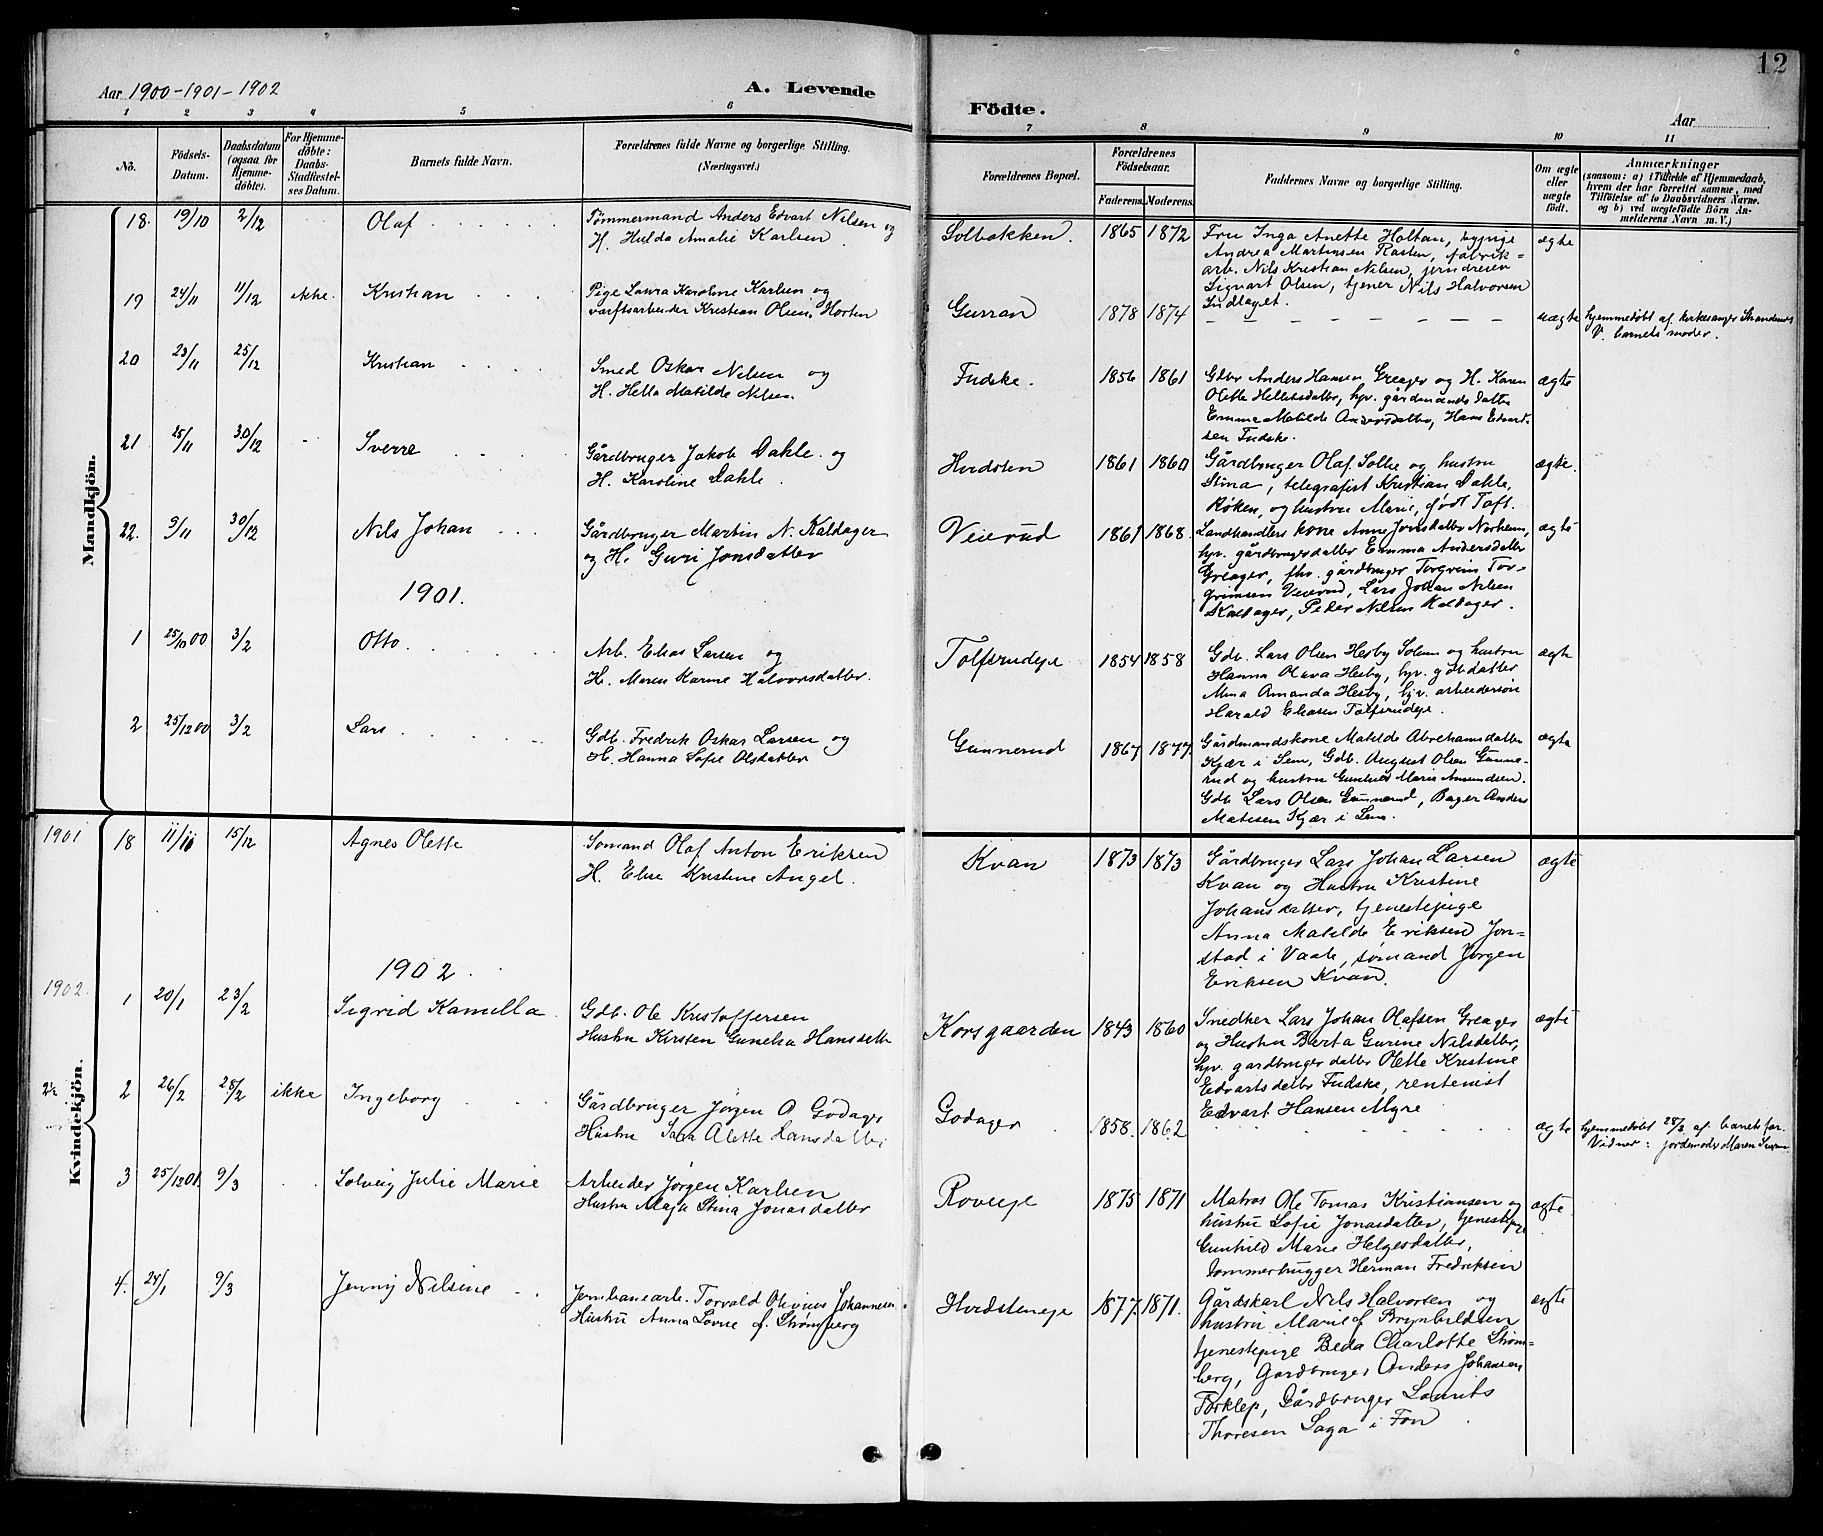 12
Aar 1900-1901-1902
A. Levende
Födte.
Aar
1 2 3 4 5 6 7 8 9 10 11
No.
Födsels-Datum.
Daabsdatum (ogsaa for Hjemmedøbte).
For Hjemmedøbte: Daabs-Stadfæstelses Datum.
Barnets fulde Navn.
Forældrenes fulde Navne og borgerlige Stilling. (Næringsvei.)
Forældrenes Bopæl.
Forældrenes Födselsaar.
Faderens. Moderens.
Faddernes Navne og borgerlige Stilling.
Om ægte eller uægte födt.
Anmærkninger
(saasom: a) i Tilfælde af Hjemmedaab, hvem der har forrettet samme, med Tilföielse af to Daabsvidners Navne. og b) ved uægtefödte Börn Anmelderens Navn m. V.)
Mandkjön.
18. 19/10 2/12 Olaf
Tømmermand Anders Edvart Nilsen og
H. Hulda Amalie Karlsen
Solbakken. 1865 1872
Fru Inga Anette Holtan, hypige
Andrea Martinsen Rasten, fabrik-
arb. Nils Kristian Nilsen, jerndreier
Sigvart Olsen, tjener Nils Halvorsen
Indlaget.
ægte
19 24/11 11/12 ikke. Kristian
Pige Laura Karoline Karlsen og
værftsarbeider Kristian Olsen, Horten
Gurran 1878 1874
uægte
hjemmedøbt af kirkesanger Strandenæs
V. barnets moder.
20 23/11 25/12 Kristian
Smed Oskar Nilsen og
H. Hella Matilde Nilsen.
Fudske. 1856 1861
Gdbr Anders Hansen Greager og H. Karen
Olette Hellesdatter, hjv. gårdmands datter
Emma Matilde Andersdatter, Hans Edvard-
sen Fudske.
ægte
21 25/11 30/12 Sverre
Gårdbruger Jakob Dahle og
H. Karoline Dahle.
Hvidsten 1861 1860
Gårdbruger Olaf Sollie og hustru
Stina, telegrafist Kristian Dahle,
Røken, og hustru Marie, født Toft.
ægte.
22. 9/11 30/12 Nils Johan
Gårdbruger Martin N. Kaldager
og H. Guri Jonsdatter
Veierud 1861 1868.
Landhandlers kone Anne Jonsdatter Norheim,
hjv. gårdbrugersdatter Emma Andersdatter
Greager, fhv. gårdbruger Torgrim Tor-
grimsen Veierud, Lars Johan Nilsen
Kaldager, Peder Nilsen Kaldager.
ægte
1901.
1 25/10 00 3/2 Otto
Arb. Elias Larsen og
H. Maren Karine Halvorsdatter.
Tolfsrudeje 1854 1858
Gdb. Lars Olsen Hesby Solem og hustru
Hanna Olava Hesby, hjv. gdbdatter
Mina Amanda Hesby, hjv. arbeidersøn
Harald Eliasen Tolfsrudeje.
ægte
2 25/12 00 3/2 Lars
Gdb. Fredrik Oskar Larsen og
H. Hanna Sofie Olsdatter
Gunnerud 1867 1877.
Gårdmandskone Matilde Abrahamsdatter
Kjær i Sem, Gdb. August Olsen Gunne-
rud og hustru Gunhild Marie Amundsen.
Gdb Lars Olsen Gunnerud, Bager Anders
Matisen Kjær i Sem.
ægte
Kvindekjön.
1901
18 11/11 15/12 Agnes Olette
Sømand Olaf Anton Eriksen
H. Elise Kristine Angel.
Kvan 1873 1873
Gårdbruger Lars Johan Larsen
Kvan og Hustru Kristine
Johansdatter, tjenestepige
Anna Matilde Eriksen Jon-
stad i Vaale, sømand Jørgen
Eriksen Kvan.
ægte
1902
1902.
1 20/1 23/2 Sigrid Kamilla
Gdb. Ole Kristoffersen
Hustru Kirsten Gunelia Hansdtr
Korsgaarden 1843 1860
Snedker Lars Johan Olafsen Greager
og Hustru Berta Gurine Nilsdatter,
hjv. gaardbrugerdatter Olette Kristine
Edvartsdatter Fudske, rentenist
Edvart Hansen Myre
ægte
2 26/2 28/2 ikke Ingeborg
Gårdbruger Jørgen A Godager
Hustru Sara Alette Hansdatter
Godager 1858. 1862
ægte
hjemmedøbt 28/2 af barnets far.
Vidner: jordemoder Maren
3 25/12 01. 9/3 Solveig Julie Marie
Arbeider Jørgen Karlsen
Hustru Maja Stina Jonasdatter
Roveeje 1875 1871
Matros Ole Tomas Kristiansen og
hustru Sofie Jonasdatter, tjenestepige
Gunhild Marie Helgesdatter,
tømmerhugger Herman Fredriksen
ægte.
4. 24/1 9/3 Jenny Nilsine
Jernbanearb. Torvald Olivius Johannesen
Hustru Anna Lovise f. Strømberg
Hvidsteneje 1877. 1871.
Gårdskarl Nils Halvorsen og
hustru Marie f Brynhildsen
tjenestepige Beda Charlotte Strøm-
berg, Gardbruger Anders Johansen
Torklep, Gårdbruger Laurits
Thoresen Saga i Fon
ægte